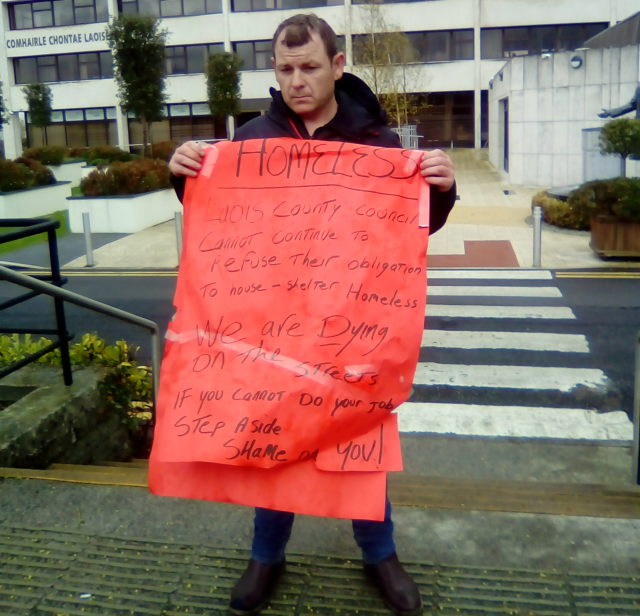 COMHAIRLE CHONTAE LAOISE
HOMELESS
LAOIS COUNTY COUNCIL
CANNOT CONTINUE TO
REFUSE THEIR OBLIGATION
TO HOUSE - SHELTER HOMELESS
WE are Dying
ON THE STREETS
IF YOU CANNOT DO YOUR JOB
STEP ASIDE
SHAME ON YOU!